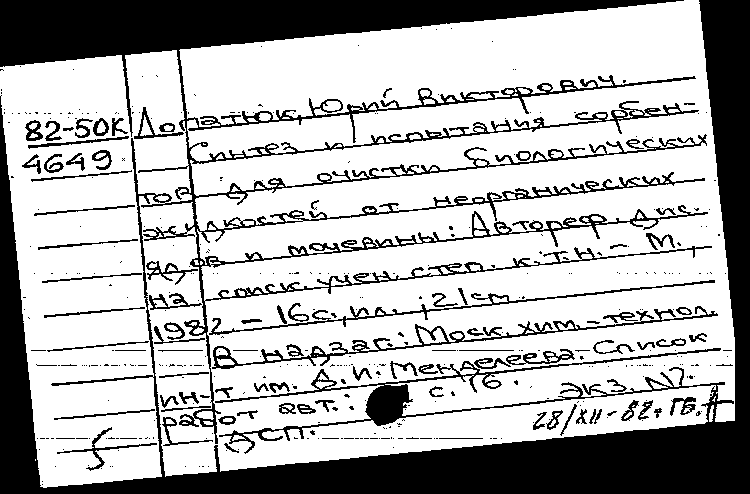 82-50К Лопатюк, Юрий Викторович.
4649 Синтез и испытания сорбен-
тов для очистки биологических
жидкостей от неорганических
ядов и мочевины: Автореф. дис.
на соиск. учен. степ. к.т.н. – М.,
1982 – 16с., ил. ; 21см.
В надзаг.: Моск. хим.-технол.
ин-т им. Д.И. Менделеева. Список
работ авт.: с. 16. экз. N7.
ДСП. 28/XII-82. ГБ.